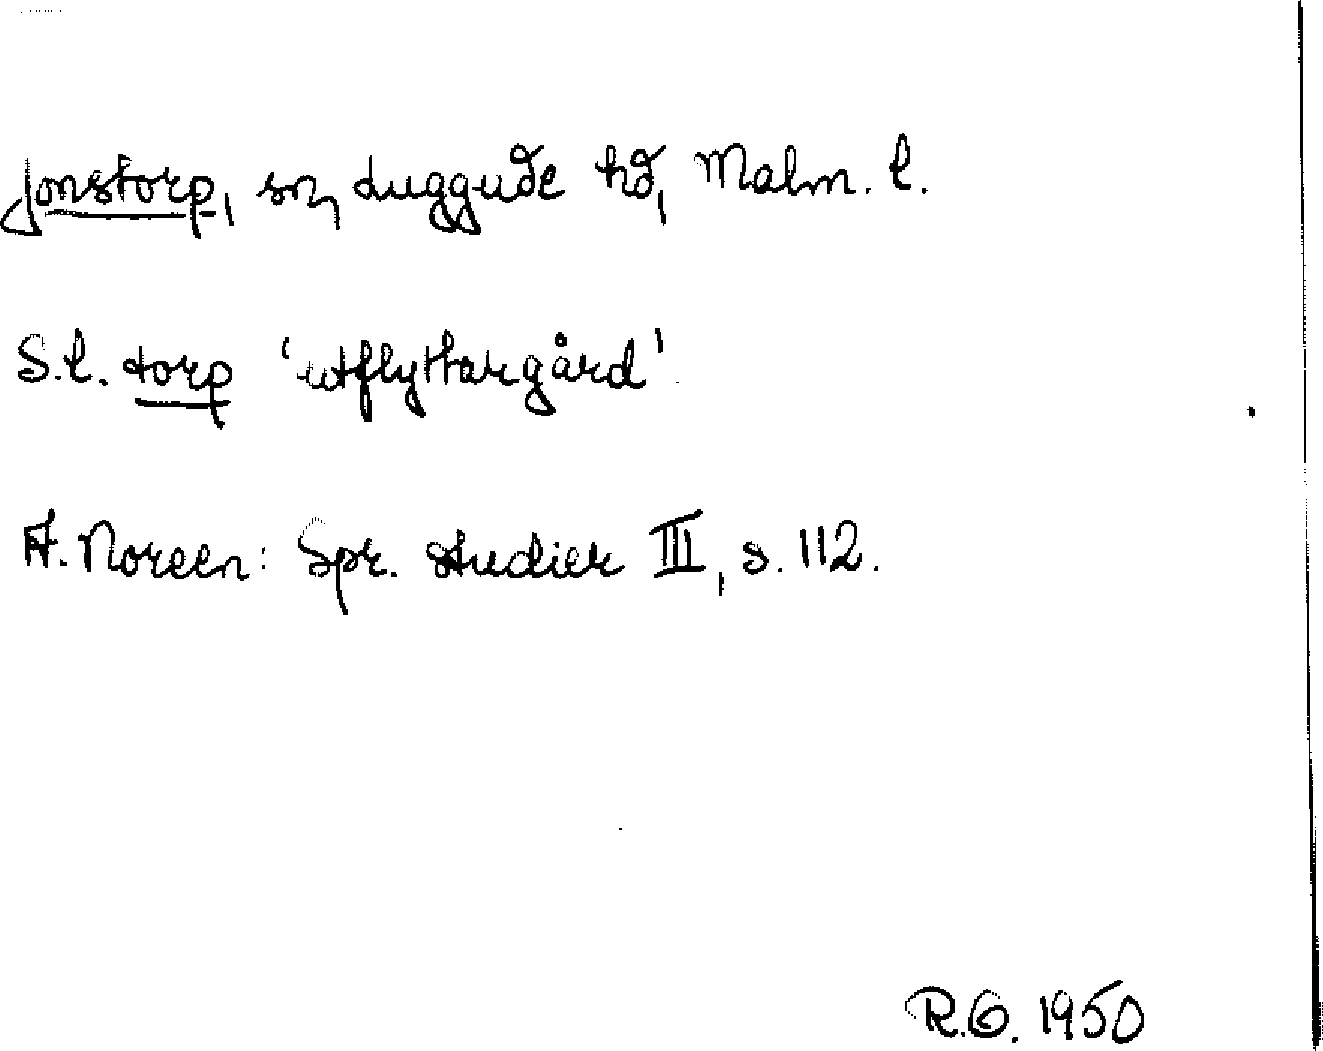 Jonstorp, sn, Luggude hd, Malm. l.
S.l. torp 'utflyttargård'.
A. Noreen: Spr. studier III, s. 112.
R.G. 1950